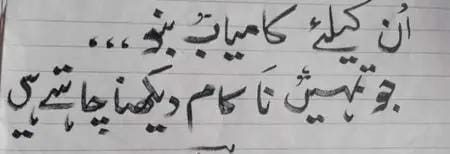 اُن کیلئے کامیاب بنو...
جو تمہیں ناکام دیکھنا چاہتے ہیں